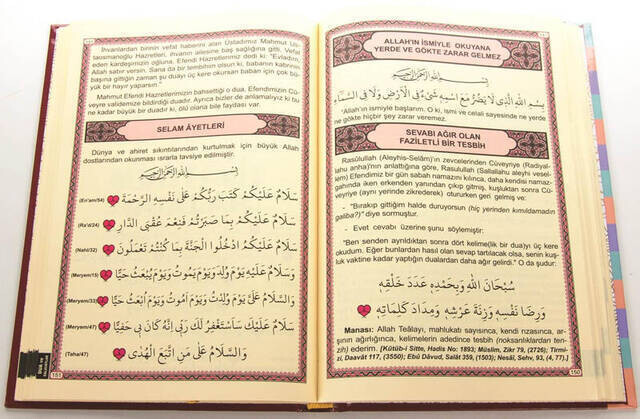 İhvanlardan birinin vefat haberini alan Üstadımız Mahmut Us-
taosmanoğlu Hazretleri, ihvanın ailesine baş sağlığına gitti. Vefat
eden kardeşimizin oğluna, Efendi Hazretlerimiz dedi ki: "Evladım,
Allah sabır versin. Sana da bir tembihim olsun ki, babanın kabrinin
başına gittiğin zaman şu duayı üç kere okursan baban için çok bü-
yük bir hayır yaparsın."
Mahmut Efendi Hazretlerimizin bahsettiği o dua, Efendimizin Cü-
veyre validemize bildirdiği duadır. Ayrıca bizler de anlamalıyız ki bu
ne kadar büyük bir duadır ki, ölü olana bile faydası var.
SELAM ÂYETLERİ
Dünya ve ahiret sıkıntılarından kurtulmak için büyük Allah
dostlarından okunması ısrarla tavsiye edilmiştir.
بِسْمِ اللهِ الرَّحْمٰنِ الرَّحِيمِ
(En'am/54) سَلَامٌ عَلَيْكُمْ كَتَبَ رَبُّكُمْ عَلٰى نَفْسِهِ الرَّحْمَةَ
(Ra'd/24) سَلَامٌ عَلَيْكُمْ بِمَا صَبَرْتُمْ فَنِعْمَ عُقْبَى الدَّارِ
(Nahl/32) سَلَامٌ عَلَيْكُمُ ادْخُلُوا الْجَنَّةَ بِمَا كُنْتُمْ تَعْمَلُونَ
(Meryem/15) وَسَلَامٌ عَلَيْهِ يَوْمَ وُلِدَ وَيَوْمَ يَمُوتُ وَيَوْمَ يُبْعَثُ حَيًّا
(Meryem/33) وَالسَّلَامُ عَلَيَّ يَوْمَ وُلِدْتُ وَيَوْمَ اَمُوتُ وَيَوْمَ اُبْعَثُ حَيًّا
(Meryem/47) سَلَامٌ عَلَيْكَ سَاَسْتَغْفِرُ لَكَ رَبِّي اِنَّهُ كَانَ بِي حَفِيًّا
(Taha/47) وَالسَّلَامُ عَلٰى مَنِ اتَّبَعَ الْهُدٰى
151
ALLAH'IN İSMİYLE OKUYANA
YERDE VE GÖKTE ZARAR GELMEZ
بِسْمِ اللهِ الرَّحْمٰنِ الرَّحِيمِ
بِسْمِ اللهِ الَّذِي لَا يَضُرُّ مَعَ اسْمِهِ شَيْءٌ فِي الْاَرْضِ وَلَا فِي السَّمَاءِ
"Allah'ın ismiyle başlarım. O ki, ismi ve celali sayesinde ne yerde
ne gökte hiçbir şey zarar veremez.
SEVABI AĞIR OLAN
FAZİLETLİ BİR TESBİH
Rasûlullah (Aleyhis-Selâm)'in zevcelerinden Cüveyriye (Radıyal-
lahu anha)'nın anlattığına göre, Rasulullah (Sallallahu aleyhi vesel-
lem) Efendimiz bir gün sabah namazını kılınca, daha kendisi namaz-
gahında iken erkenden yanından çıkıp gitmiş, kuşluktan sonra Cü-
veyriye (aynı yerinde zikrederek) otururken geri gelmiş ve:
- "Bırakıp gittiğim halde duruyorsun (hiç yerinden kımıldamadın
galiba?)" diye sormuştur.
- Evet cevabı üzerine şunu söylemiştir:
"Ben senden ayrıldıktan sonra dört kelime(lik bir dua)yı üç kere
okudum. Eğer bunlardan hasıl olan sevap tartılacak olsa, senin kuş-
luk vaktine kadar yaptığın dualardan daha ağır gelirdi." O da şudur:
سُبْحَانَ اللهِ وَبِحَمْدِهِ عَدَدَ خَلْقِهِ
وَرِضَا نَفْسِهِ وَزِنَةَ عَرْشِهِ وَمِدَادَ كَلِمَاتِهِ
Manası: Allah Teâlayı, mahlukatı sayısınca, kendi rızasınca, ar-
şının ağırlığınca, kelimelerin adedince tesbih (noksanlıklardan ten-
zih) ederim. [Kütüb-i Sitte, Hadis No: 1893; Müslim, Zikr 79, (2726); Tirmi-
zi, Daavât 117, (3550); Ebû Dâvud, Salât 359, (1503); Nesâî, Sehv, 93, (4, 77).]
150